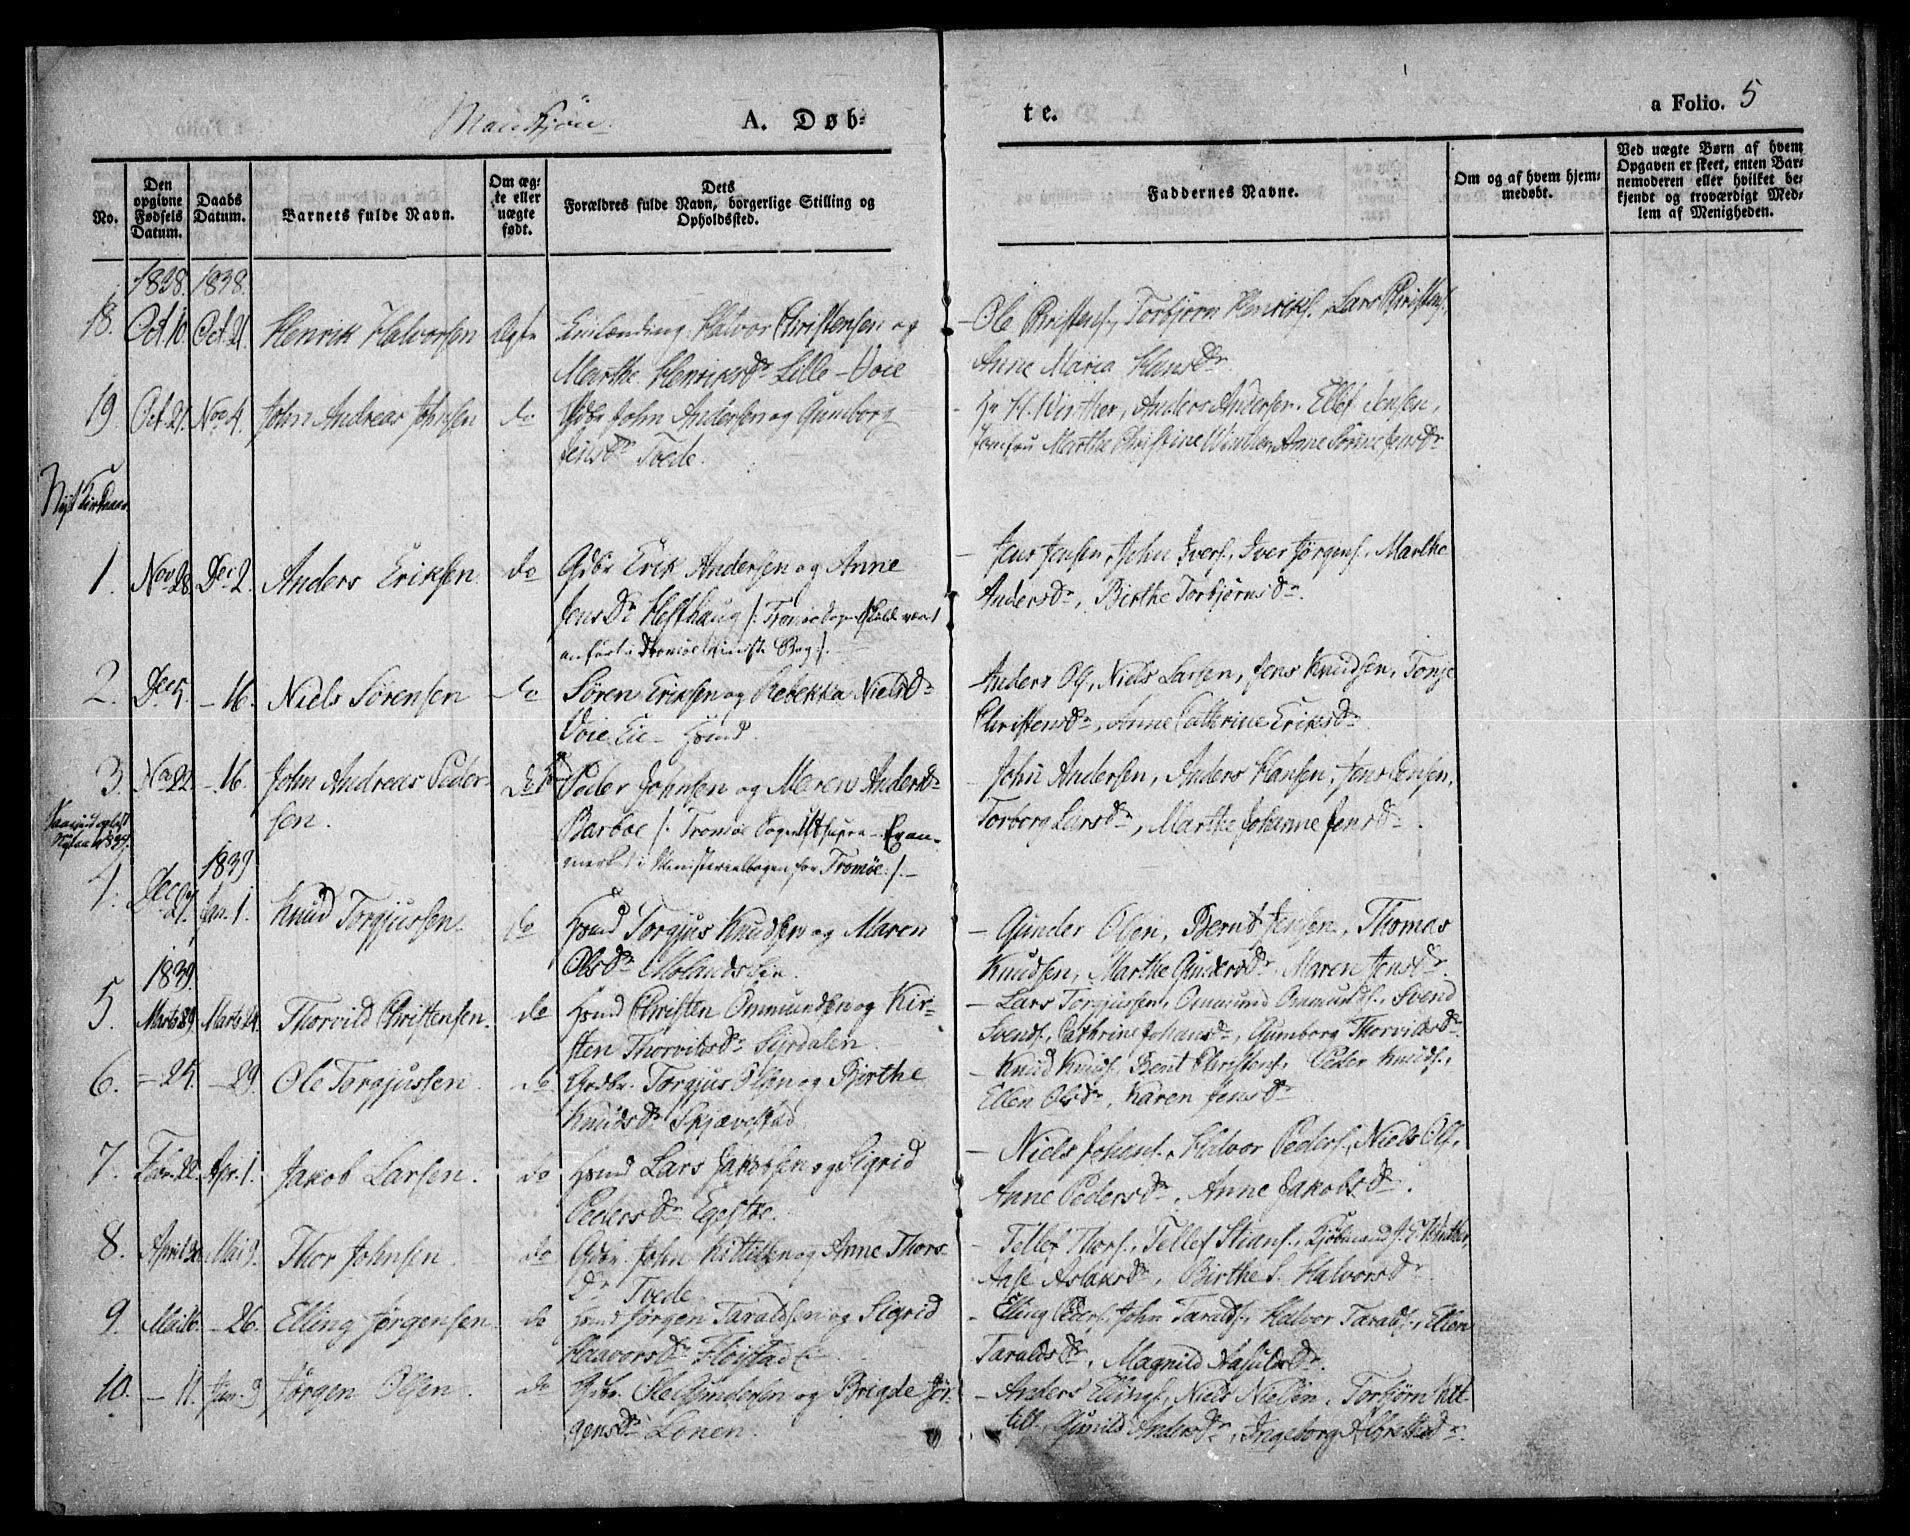 Mandkjøn.
A. Døb-
te.
a Folio. 5
No.
Den opgivne Fødsels Datum.
Daabs Datum.
Barnets fulde Navn.
Om ægte eller uægte født.
Dets Forældres fulde Navn, borgerlige Stilling og Opholdssted.
Faddernes Navne.
Om og af hvem hjemmedøbt.
Ved uægte Børn af hvem Opgaven er skeet, enten Barnemoderen eller hvilket bekjendt og troværdigt Medlem af Menigheden.
1838. 1838.
18. Oct 10. Oct. 21. Henrik Halvorsen Ægte Halvor Christensen og
Marthe Henriksdr Lille-Voie
Ole Christens., Torbjørn Henriks., Lars Christens.
Anne Maria Hansdr
19. Oct. 21. Nov 4. John Andreas Johnsen do Gdbr John Andersen og Gumborg
Jensdr Tvede.
Hr H. Winther, Anders Andersen. Ellef Jensen,
Jomfru Marthe Christine Winther, Anne Sørine Jensdr
Nyt Kirkeaar.
1. Nov 28. Dec 2. Anders Eriksen do Gdbr Erik Andersen og Anne
Jensdr Hesthaug /: Tromøe Sogn skulde været
anført i Tromøe Minist. Bog :/.
Jens Jensen, John Ivers., Iver Jørgens., Marthe
Andersdr, Birthe Torbjørnsdr.
2. Dec 5. - 16. Niels Sørensen do Søren Eriksen og Rebekka Nielsdr
Voie Eie - Hsmd.
Anders Ol., Niels Larsen, Jens Knudsen, Tonje
Christensdr, Anne Cathrine Eriksdr
3. Nov 22. - 16. John Andreas Peder-
sen.
do Peder Johnsen og Maren Andersdr
Barboe /: Tromøe Sogn Ut supra -
mерkt i Ministerialbogen for Tromøe :/. -
John Andersen, Anders Hansen, Jens Jensen,
Torborg Larsdr, Marthe Johanne Jensdr.
1839
4. Dec 27. Jan. 1. Knud Torgjussen do Hsmd Torgjus Knudsen og Maren
Olsdr Molandseie.
- Gunder Olsen, Bernt Jensen, Thomas
Knudsen, Marthe Gundersdr, Maren Jensdr.
1839.
5. Marts 24. Thorvild Christensen. do Hsmd Christen Ommundsen og Kir-
sten Thorvildsdr Sirdalen.
- Lars Torgjussen, Ommund Ommunds., Svend
Svends., Cathrine Johansdr, Gumborg Thorvildsdr
6. - 24. - 29. Ole Torgjussen. do Grdbr. Torgjus Olsen og Birthe
Knudsdr Skjævestad
- Knud Knuds., Bent Christens., Peder Knuds.,
Ellen Olsdr, Karen Jensdr
7. Febr. 22. Apr. 1. Jakob Larsen. do Hsmd Lars Jakobsen og Sigrid
Pedersdr
- Niels Johans., Halvor Peders., Niels Ols.,
Anne Pedersdr, Anne Jakobsdr.
8. April 30. Mai 9. Thor Johnsen. do Gdbr. John Kittilsen og Anne Thors-
dr Tvede.
- Tellef Thors., Tellef Stians., Kjøbmand H. Winther,
Aase Aslaksdr, Birthe S. Halvorsdr
9. Mai 6. - 26. Elling Jørgensen. do Hsmd Jørgen Taraldsen og Sigrid
Haavorsdr Fløistad
- Elling Peders., John Taralds., Halvor Taralds., Ellen
Taraldsdr, Magnild
10. - 11. Jun. 9 Jørgen Olsen. do Gdbr. Ole Gundersen og Brigde Jør-
gensdr Lonen.
- Anders Ellings., Niels Nielsen, Torbjørn Kit-
tels., Gunild Andersdr, Ingeborg Albretsdr.